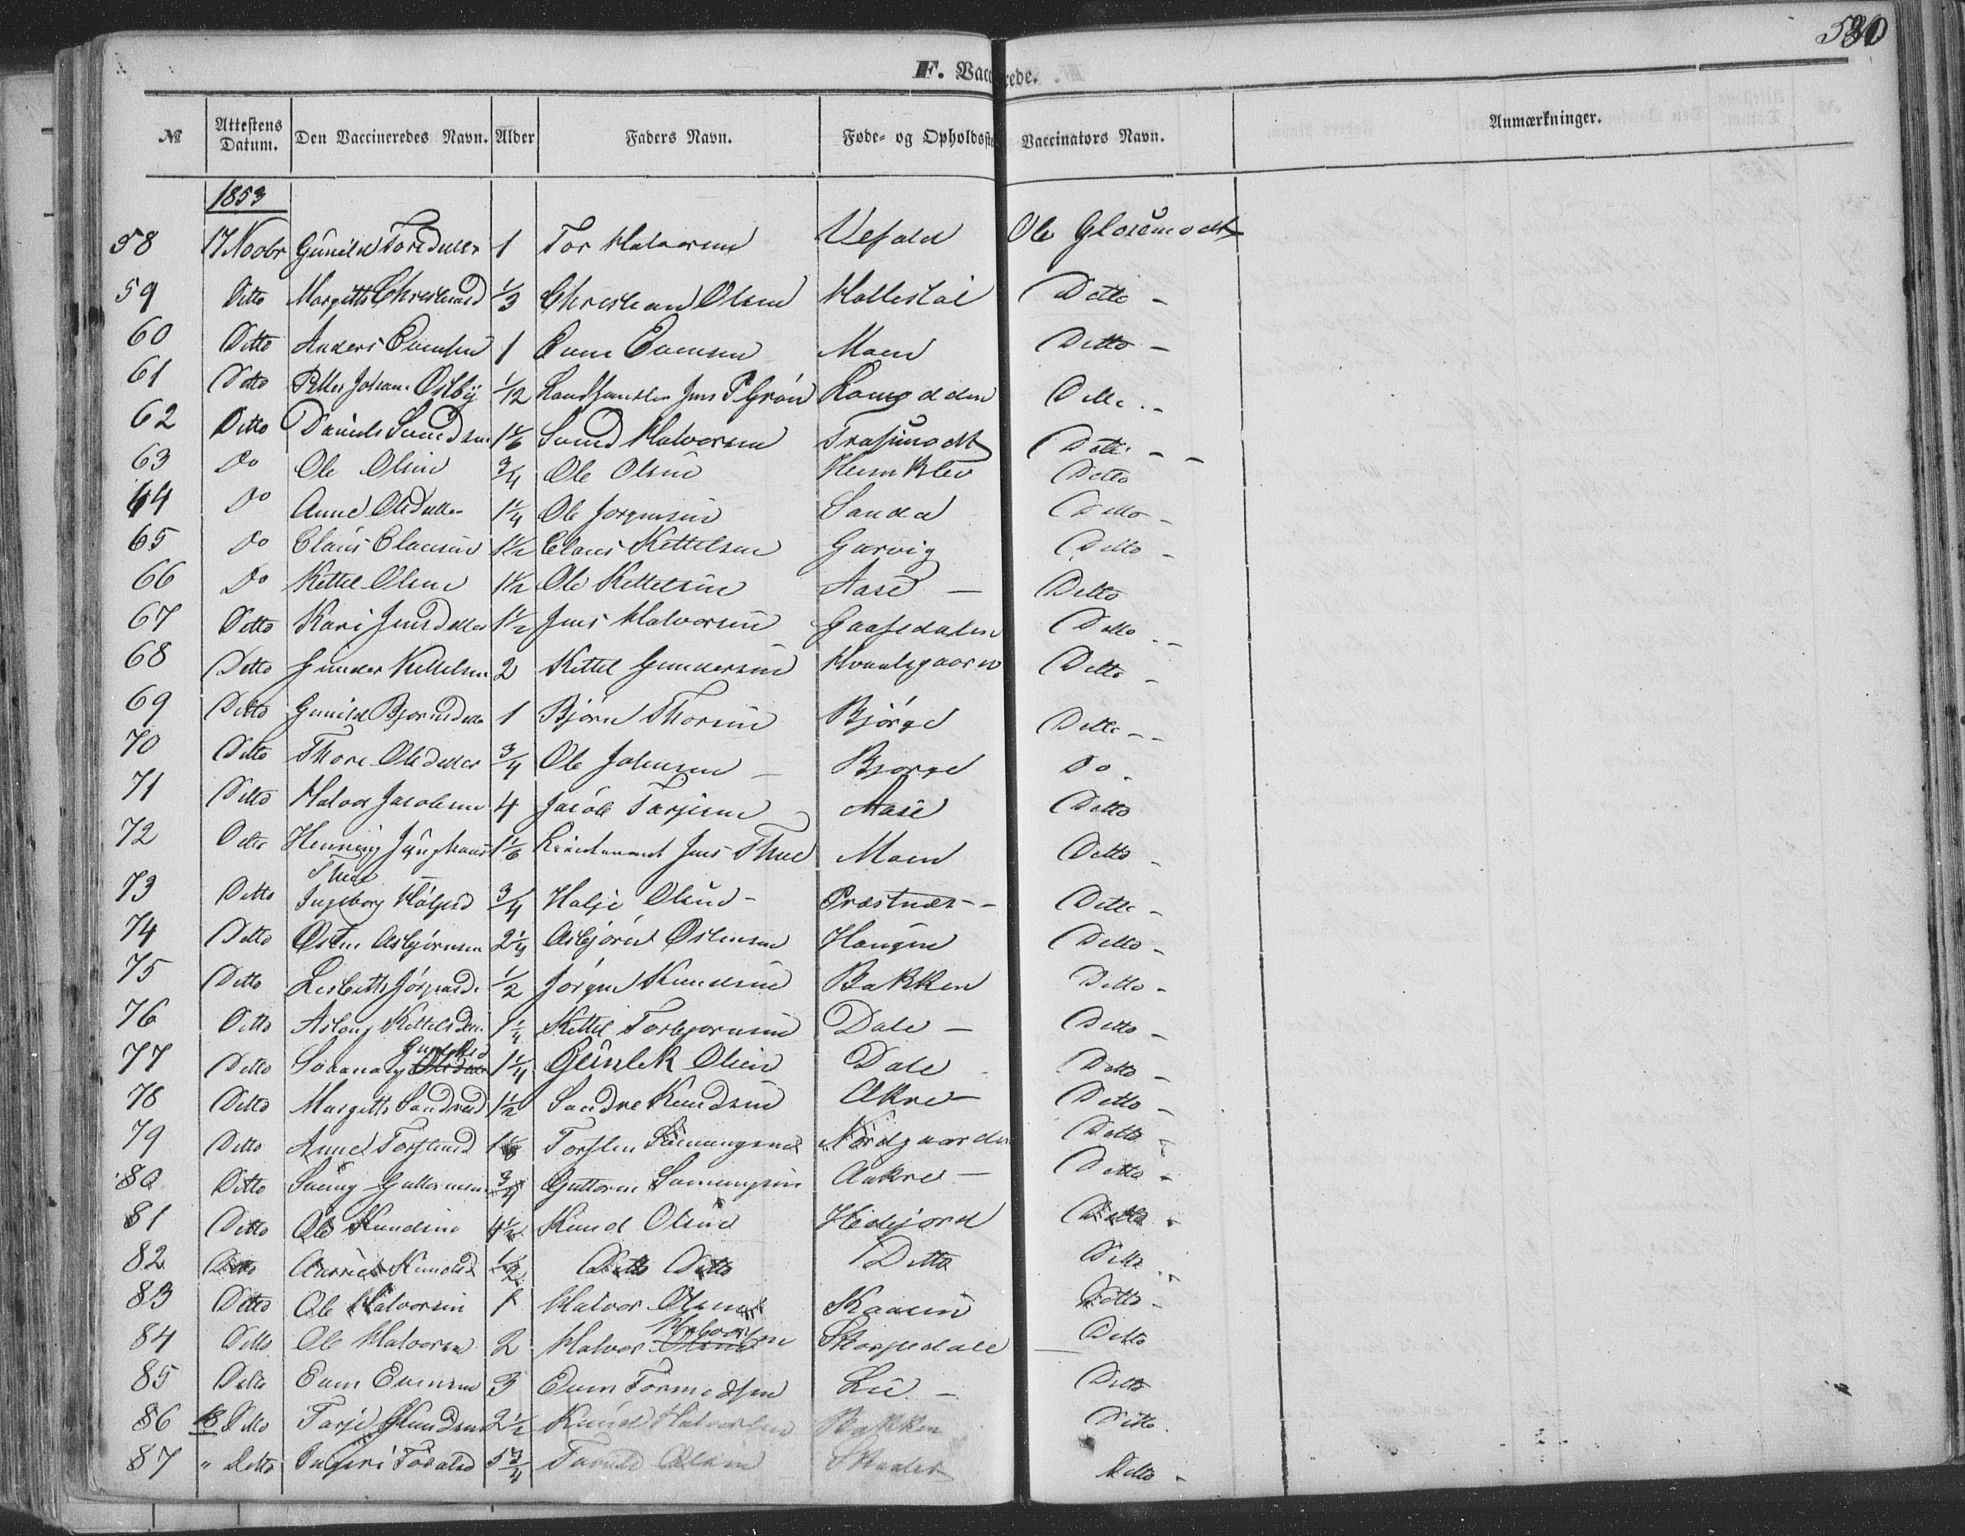 F. Vaccinerede.
№ Attestens Datum. Den Vaccineredes Navn. Alder Faders Navn. Føde- og Opholdsste Vaccinators Navn. Anmærkninger.
1853
58 17 Novbr Gunild Torsdatter 1 Tor Halvorsen Ole Glosimodt
59 Ditto Margith Christiansd 1/3 Christian Olsen Ditto -
60 Ditto Anders Evensen 1 Even Evensen Moen Ditto -
61 Ditto Petter Johan Østby 1/12 Landhandler Jens P Grøn Ditto -
62 Ditto Daniel Svendsen 1 1/6 Svend Halvorsen Ditto - -
63 Do Ole Olsen 3/4 Ole Olsen Ditto
64 Do Anne Olsdatter 1 1/4 Ole Jørgensen Sanda Ditto -
65 Do Claus Clausen 1 1/2 Claus Kettelsen Garvig Ditto -
66 Do Kettel Olsen 1 1/2 Ole Kettelsen Aase - Ditto
67 Ditto Kari Jensdatter 1 1/2 Jens Halvorsen Gaasedalen Ditto - -
68 Ditto Gunder Kittelsen 2 Kittel Gundersen Ditto -
69 Ditto Gunild Bjørnsdatter 1 Bjørn Thorsen Bjørge Ditto - -
70 Ditto Thore Olsdatter 3/4 Ole Johnsen - Bjørge Do -
71 Ditto Halvor Jacobsen 4 Jacob Tarjesen Aase Ditto
72 Ditto Henning Junghans Thue 1 1/6 Lieutenant Jens Thue Moen Ditto -
73 Ditto Ingeborg Haljesd 3/4 Halje Olsen - Præstnæs - - Ditto -
74 Ditto Østen Asbjørnsen 2 1/4 Asbjørn Østensen Haugen Ditto -
75 Ditto Lisbeth Jørgensd 1/2 Jørgen Knudsen Bakken Ditto -
76 Ditto Aslaug Kettelsdatter 1 1/4 Kettel Torbjørnsen Dale - Ditto -
77 Ditto Gunleksd Olsdatter 1 1/4 Gunlek Olsen Dale - Ditto -
78 Ditto Margith Sondresd 1 1/2 Sondre Knudsen Akre - Ditto -
79 Ditto Anne Torstensd Torsten Sæmungsen Nordgaarden Ditto -
80 Ditto Guttormsen 3/4 Guttorm Sæmungsen Aakre - Ditto -
81 Ditto Ole Knudsen 4 1/2 Knud Olsen Hedejord Ditto -
82 Ditto Knudsd 1/2 Ditto Ditto Ditto Ditto - -
83 Ditto Ole Halvorsen 1 Halvor Olsen Kaasen Ditto -
84 Ditto Ole Halvorsen 2 Halvor Olsen Halvorsen Skarpedalen Ditto
85 Ditto Even Evensen 3 Even Tormodsen Lie - Ditto
86 18 Ditto Tarje Knudsen 2 1/2 Knud Halvorsen Bakken Ditto.
87 " Ditto 5 3/4 Olsen Ditto -